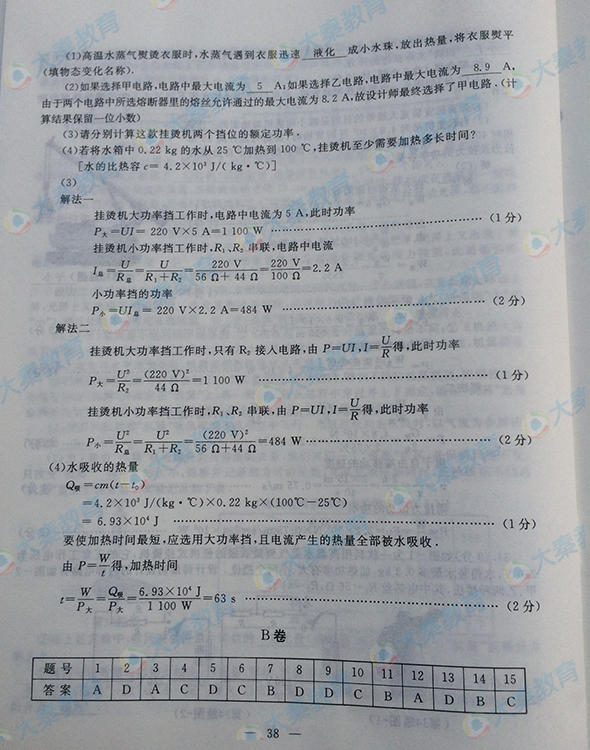 (1)高温水蒸气熨烫衣服时,水蒸气遇到衣服迅速 液化 成小水珠,放出热量,将衣服熨平
(填物态变化名称).
(2)如果选择甲电路,电路中最大电流为 5 A;如果选择乙电路,电路中最大电流为 8.9 A,
由于两个电路中所选熔断器里的熔丝允许通过的最大电流为8.2 A,故设计师最终选择了甲电路.(计
算结果保留一位小数)
(3)请分别计算这款挂烫机两个挡位的额定功率.
(4)若将水箱中0.22 kg的水从25 ℃加热到100 ℃,挂烫机至少需要加热多长时间?
[水的比热容c= 4.2×10³ J/( kg·℃)]
(3)
解法一
挂烫机大功率挡工作时,电路中电流为5 A,此时功率
P大=UI= 220 V×5 A=1 100 W ……………… (1分)
挂烫机小功率挡工作时,R₁、R₂ 串联,电路中电流
I总=U/R总=U/(R₁+R₂)=220 V/(56 Ω+44 Ω)=220 V/100 Ω=2.2 A
小功率挡的功率
P小=UI总= 220 V×2.2 A=484 W ……………… (2分)
解法二
挂烫机大功率挡工作时,只有R₂接入电路,由P=UI,I=U/R得,此时功率
P大=U²/R₂=(220 V)²/44 Ω=1 100 W ……………… (1分)
挂烫机小功率挡工作时,R₁、R₂ 串联,由P=UI,I=U/R得,此时功率
P小=U²/R总=U²/(R₁+R₂)=(220 V)²/(56 Ω+44 Ω)=484 W ……………… (2分)
(4)水吸收的热量
Q吸=cm(t-t₀)
=4.2×10³ J/(kg·℃)×0.22 kg×(100℃-25℃)
= 6.93×10⁴ J ……………… (1分)
要使加热时间最短,应选用大功率挡,且电流产生的热量全部被水吸收.
由P=W/t得,加热时间
t=W/P大=Q吸/P大=6.93×10⁴ J/1 100 W=63 s ……………… (2分)
B卷
题号 1 2 3 4 5 6 7 8 9 10 11 12 13 14 15
答案 A D A C D C B D D C B A D B C
— 38 —
大秦教育